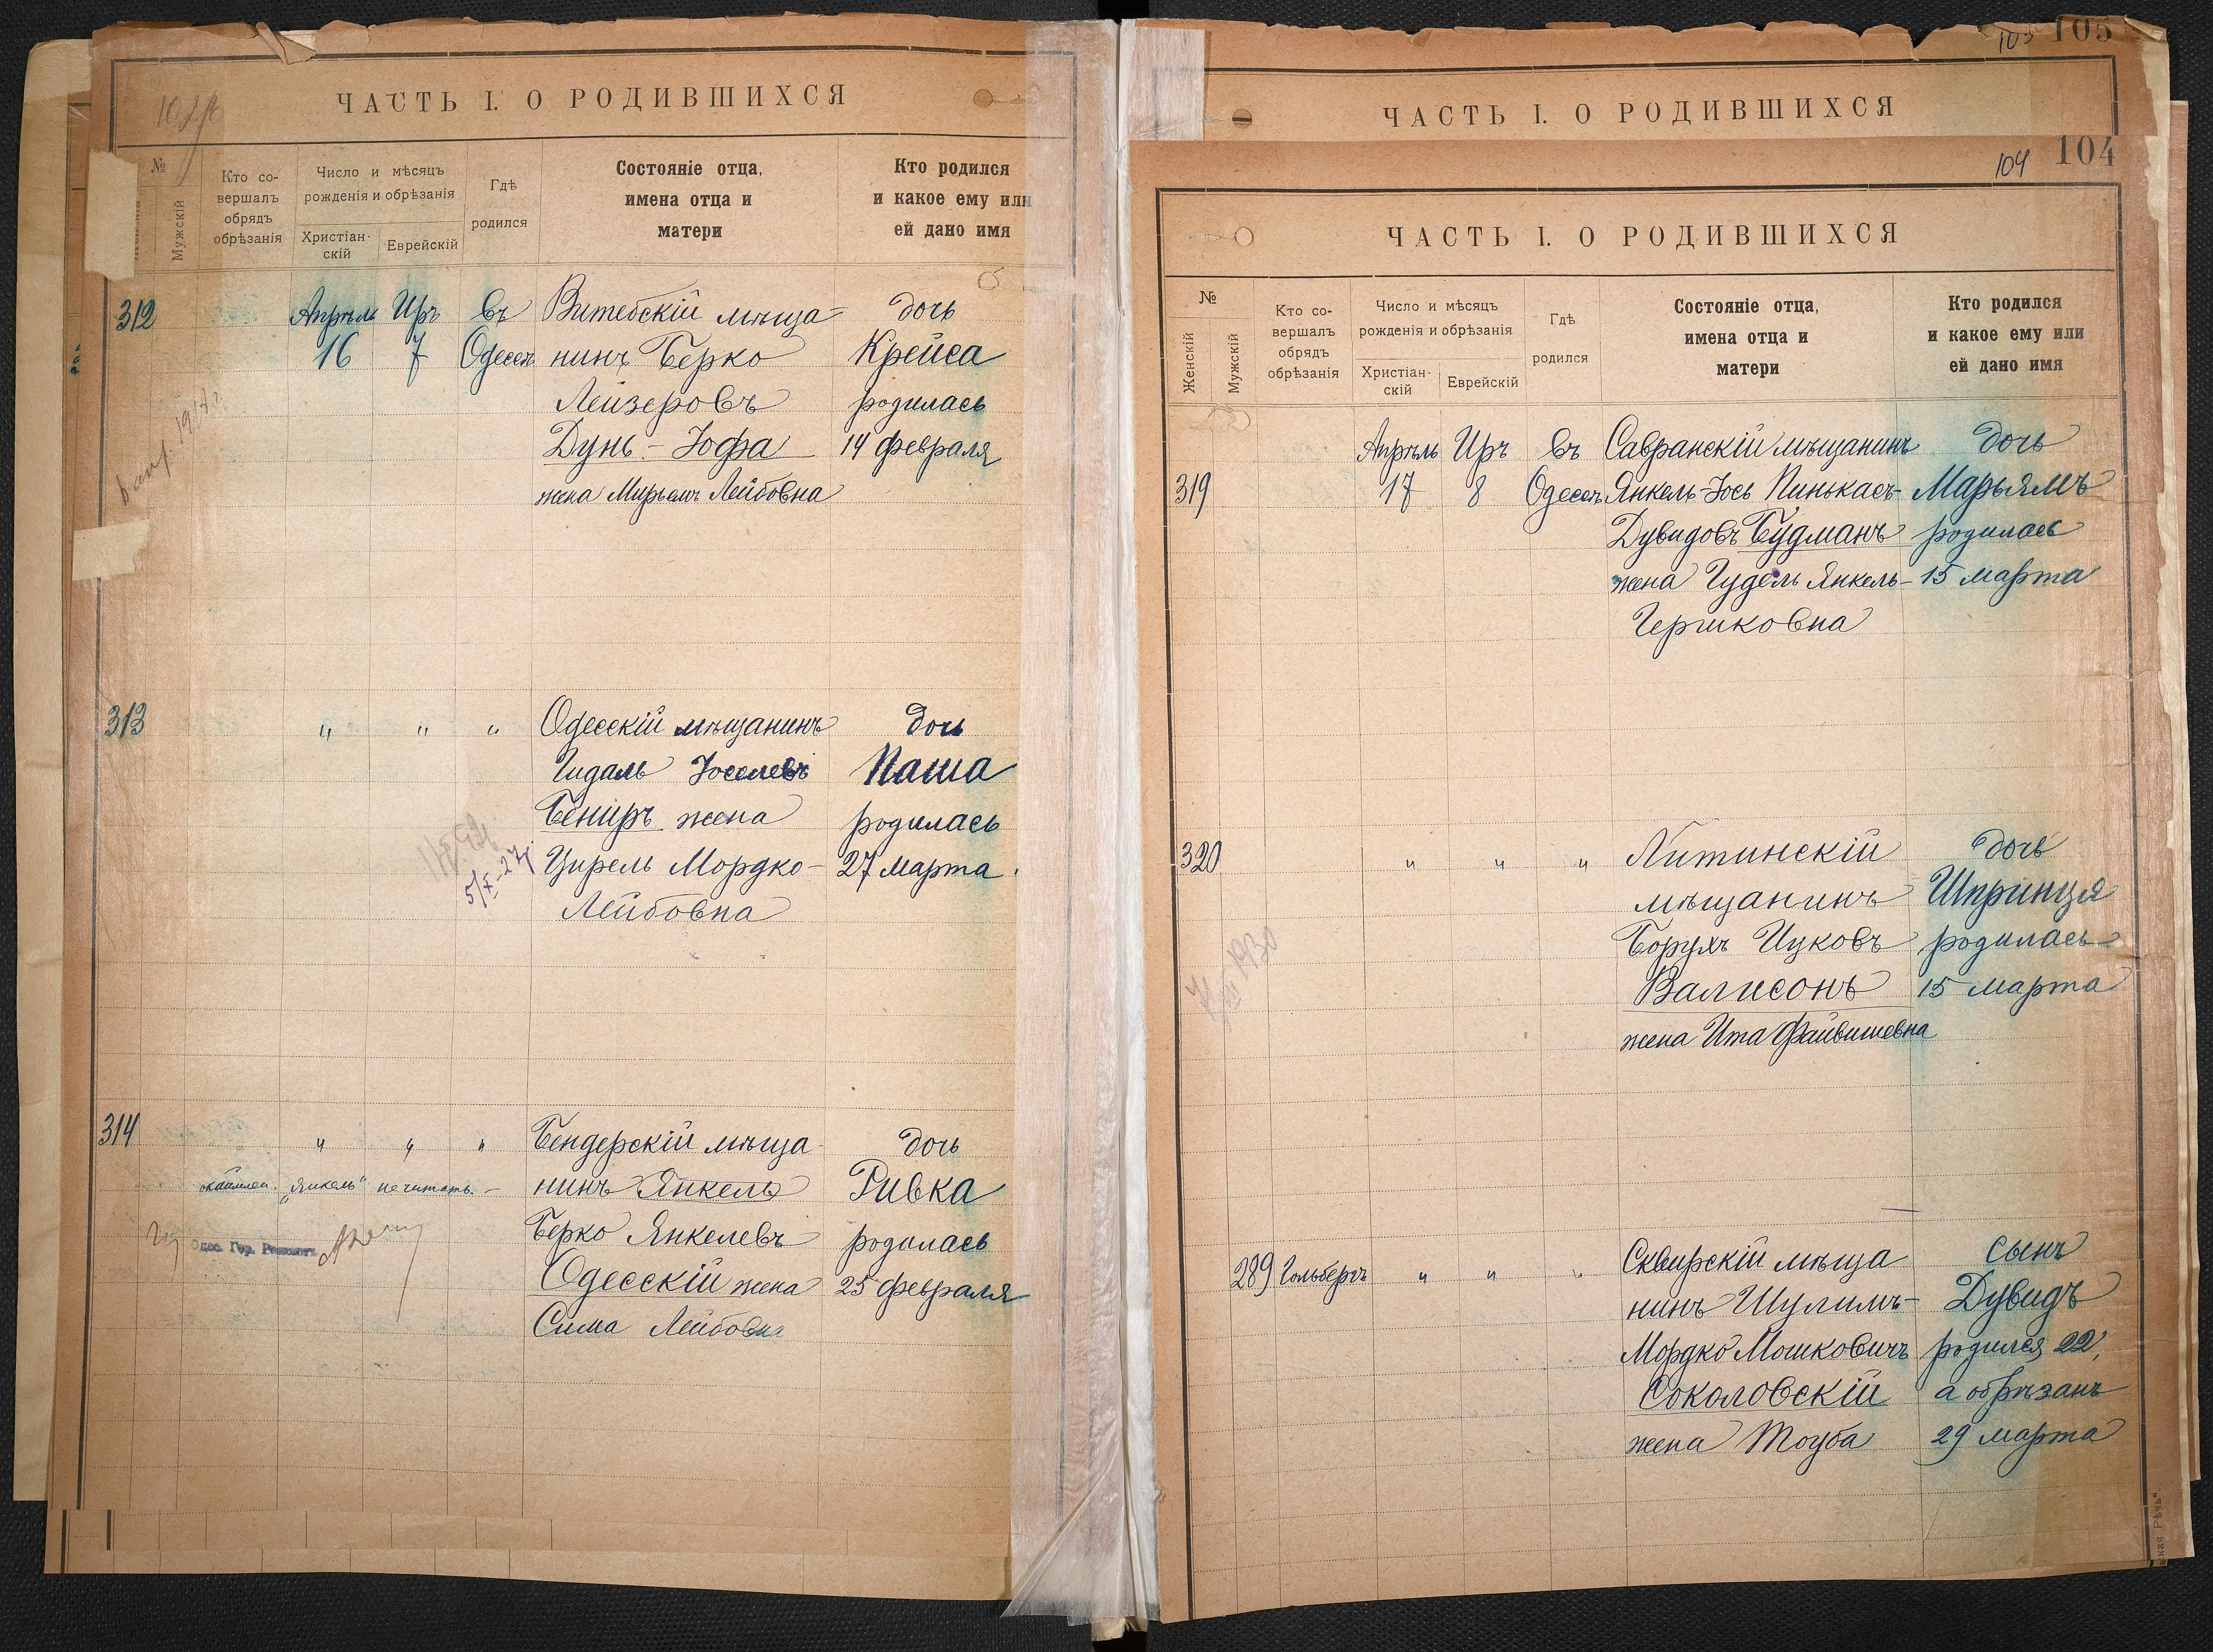 ЧАСТЬ I. О РОДИВШИХСЯ
№
Мужскій
Кто со-
вершалъ
обрядъ
обрѣзанія
Число и мѣсяцъ
рожденія и обрѣзанія
Христіан-
скій
Еврейскій
Гдѣ
родился
Состояніе отца,
имена отца и
матери
Кто родился
и какое ему или
ей дано имя
312 Апрѣль Иръ въ Витебскій мѣща- дочь
16 7 Одессѣ нинъ Берко Крейса
Лейзеровъ родилась
Дунь-Іофа 14 февраля
жена Мирьемъ Лейбовна
313 " " " Одесскій мѣщанинъ дочь
Гидаль Іоселевъ Паша
Бениръ жена родилась
5/X-27 Цирель Мордко- 27 марта.
Лейбовна
314 " " " Бендерскій мѣща- дочь
"Янкель" не читать. - нинъ Янкель Ривка
Берко Янкелевъ родилась
Одес. Гор.
Одесскій жена 25 февраля
Сима Лейбовна
105
ЧАСТЬ I. О РОДИВШИХСЯ
104 104
ЧАСТЬ I. О РОДИВШИХСЯ
№
Женскій
Мужскій
Кто со-
вершалъ
обрядъ
обрѣзанія
Число и мѣсяцъ
рожденія и обрѣзанія
Христіан-
скій
Еврейскій
Гдѣ
родился
Состояніе отца,
имена отца и
матери
Кто родился
и какое ему или
ей дано имя
Апрѣль Иръ въ Савранскій мѣщанинъ дочь
319 17 8 Одессѣ Янкель-Іось Пинькасъ- Марьямъ
Дувидовъ Будманъ родилась
жена Гудель Янкель- 15 марта
Гершковна
320 " " " Литинскій дочь
мѣщанинъ Шпринця
Борухъ Ицковъ родилась
Валисонъ 15 марта
1930
жена Ита Файвишевна
289 Гольбергъ " " " Сквирскій мѣща сынъ
нинъ Шулимъ- Дувидъ
Мордко Мошковичъ родился 22,
Соколовскій а обрѣзанъ
жена Тоуба 29 марта